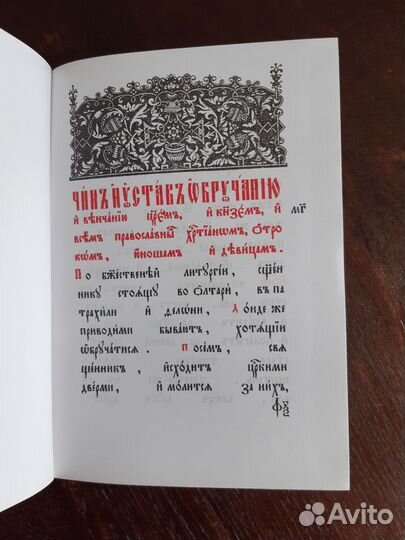 Чи́нъ и҆ ѹ҆ста́въ ѡ҆брꙋча́нїю
и҆ вѣнча́нїю цр҃е́мъ, и҆ кнѧзе́мъ, и҆
всѣ́мъ правосла́внымъ хрⷭ҇тїа́номъ, ѻ҆́тро
кѡмъ, ю҆́ношамъ и҆ дѣви́цамъ.
По бж҃е́ственнѣй литꙋргі́и, сщ҃е́н
никꙋ стоѧ́щꙋ во ѻ҆лтари́, въ па
трахи́ли и҆ фело́ни, до́ндеже
приводи́ми быва́ютъ, хотѧ́щїи
ѡ҆брꙋча́тисѧ. Посе́мъ, свѧ
ще́нникъ, и҆схо́дитъ цр҃кими
две́рми, и҆ мо́литсѧ за ни́хъ,
Avito